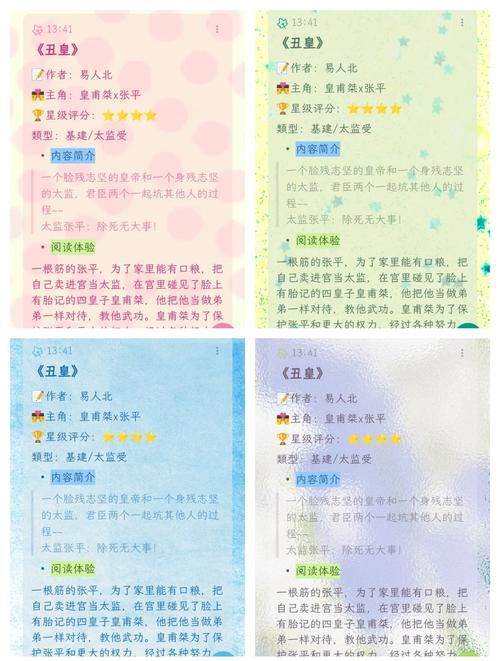 13:41
《丑皇》
📝作者：易人北
👩‍❤️‍👨主角：皇甫桀x张平
🏆星级评分：⭐⭐⭐⭐
類型：基建/太监受
• 内容简介
一个脸残志坚的皇帝和一个身残志坚
的太监，君臣两个一起坑其他人的过
程~~
太监张平：除死无大事！
• 阅读体验
一根筋的张平，为了家里能有口粮，把
自己卖进宫当太监，在宫里碰见了脸上
有胎记的四皇子皇甫桀，他把他当做弟
弟一样对待，教他武功。皇甫桀为了保
13:41
《丑皇》
📝作者：易人北
👩‍❤️‍👨主角：皇甫桀x张平
🏆星级评分：⭐⭐⭐⭐
類型：基建/太监受
• 内容简介
一个脸残志坚的皇帝和一个身残志坚
的太监，君臣两个一起坑其他人的过
程~~
太监张平：除死无大事！
• 阅读体验
一根筋的张平，为了家里能有口粮，把
自己卖进宫当太监，在宫里碰见了脸上
有胎记的四皇子皇甫桀，他把他当做弟
弟一样对待，教他武功。皇甫桀为了保
护张平和更大的权力，经过各种努力
13:41
《丑皇》
📝作者：易人北
👩‍❤️‍👨主角：皇甫桀x张平
🏆星级评分：⭐⭐⭐⭐
類型：基建/太监受
• 内容简介
一个脸残志坚的皇帝和一个身残志坚
的太监，君臣两个一起坑其他人的过
程~~
太监张平：除死无大事！
• 阅读体验
一根筋的张平，为了家里能有口粮，把
自己卖进宫当太监，在宫里碰见了脸上
有胎记的四皇子皇甫桀，他把他当做弟
弟一样对待，教他武功。皇甫桀为了保
13:41
《丑皇》
📝作者：易人北
👩‍❤️‍👨主角：皇甫桀x张平
🏆星级评分：⭐⭐⭐⭐
類型：基建/太监受
• 内容简介
一个脸残志坚的皇帝和一个身残志坚
的太监，君臣两个一起坑其他人的过
程~~
太监张平：除死无大事！
• 阅读体验
一根筋的张平，为了家里能有口粮，把
自己卖进宫当太监，在宫里碰见了脸上
有胎记的四皇子皇甫桀，他把他当做弟
弟一样对待，教他武功。皇甫桀为了保